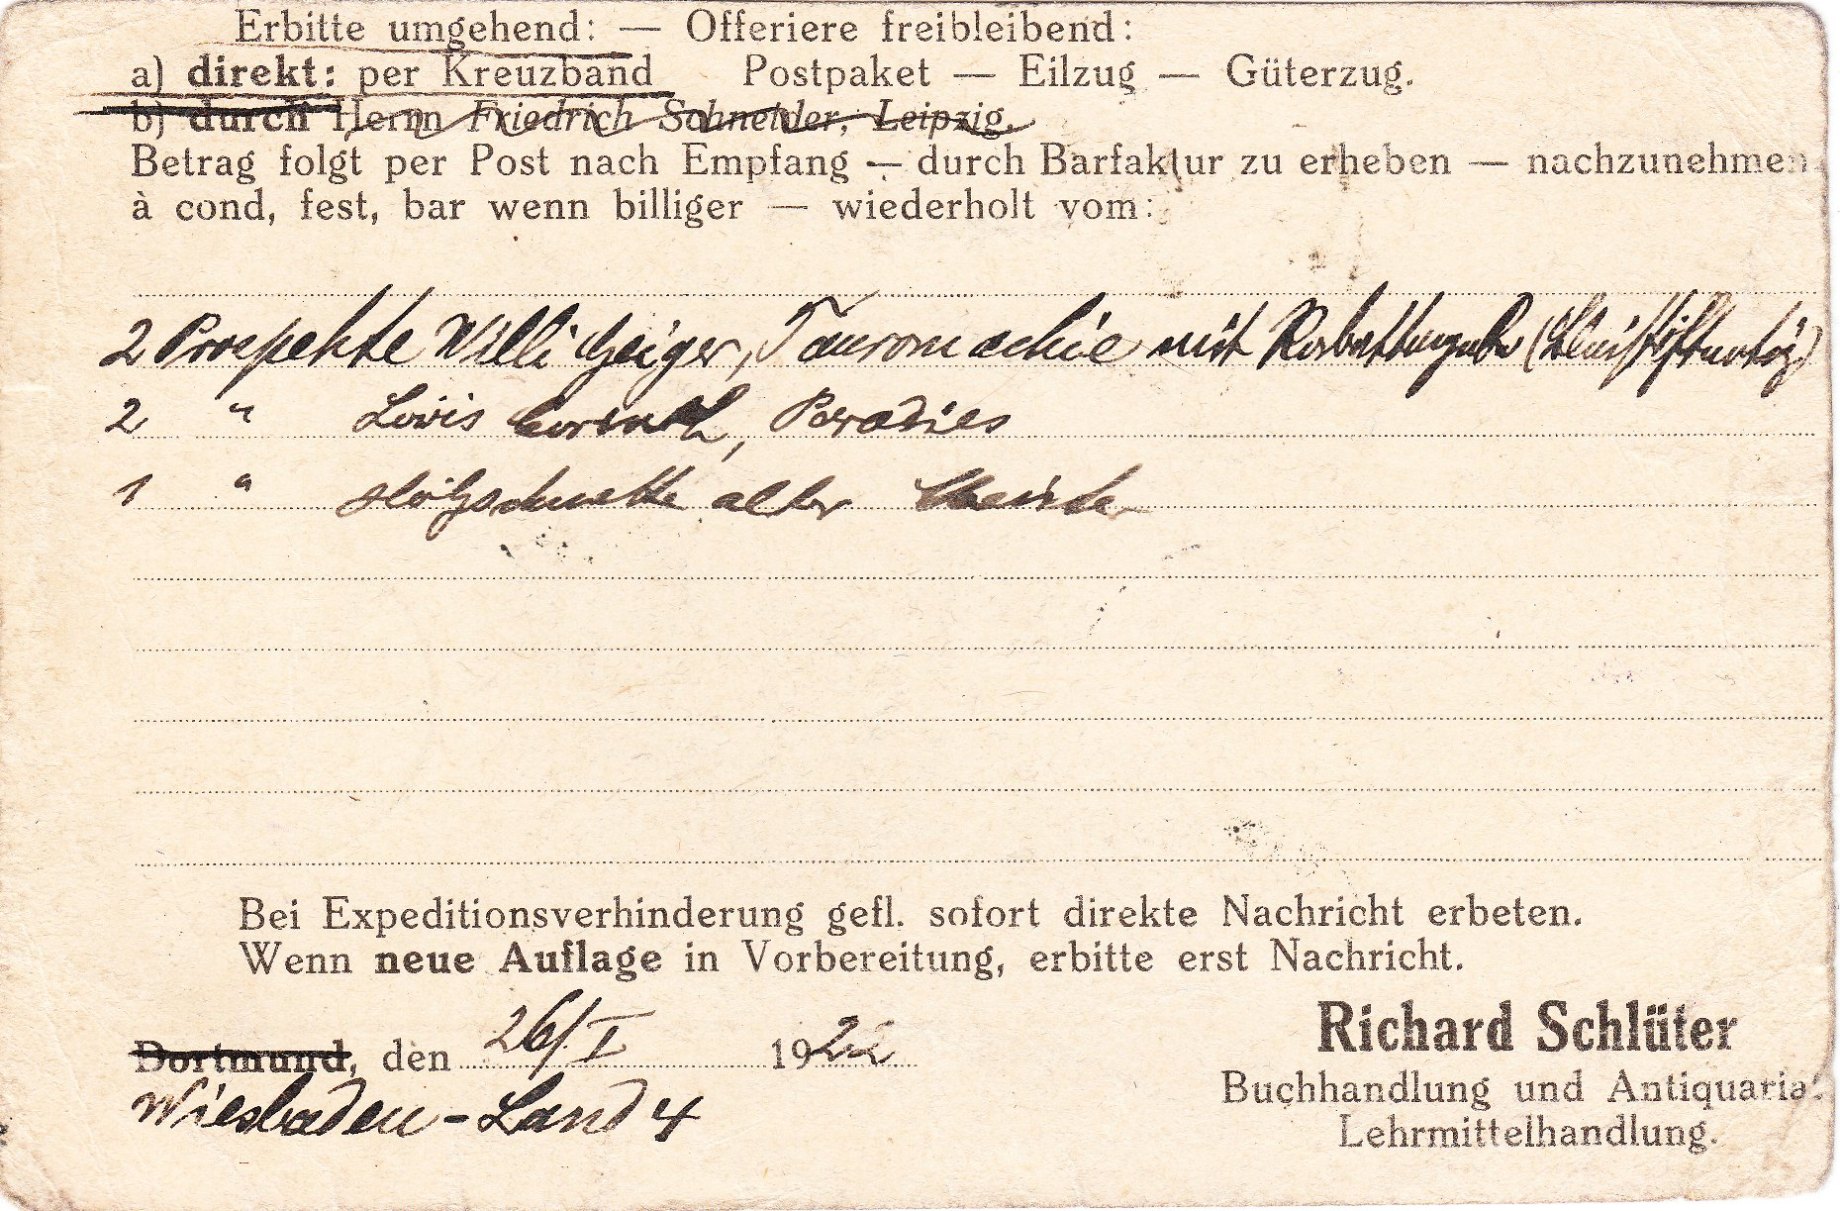 Erbitte umgehend: — Offeriere freibleibend:
a) direkt: per Kreuzband Postpaket — Eilzug — Güterzug.
b) durch Herrn Friedrich Schneider, Leipzig.
Betrag folgt per Post nach Empfang — durch Barfaktur zu erheben — nachzunehmen
à cond, fest, bar wenn billiger — wiederholt vom:
2 Prospekte Willi Geiger, Tauromachie mit
2 " Lovis Corinth, Paradies
1 " Holzschnitte alter Meister
Bei Expeditionsverhinderung gefl. sofort direkte Nachricht erbeten.
Wenn neue Auflage in Vorbereitung, erbitte erst Nachricht.
Dortmund, den 26/I 1922
Wiesbaden-Land 4
Richard Schlüter
Buchhandlung und Antiquariat
Lehrmittelhandlung.